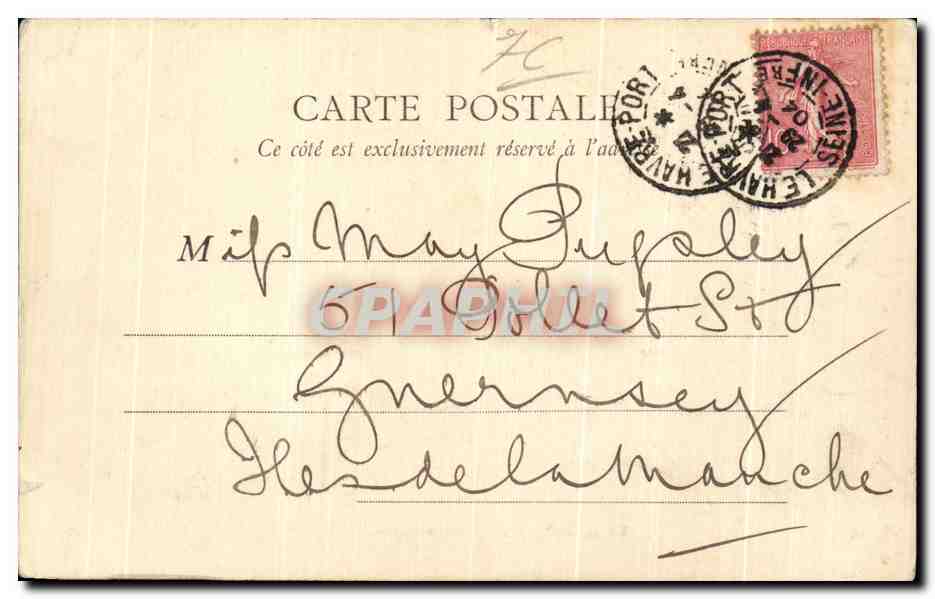 7C
CARTE POSTALE
Ce côté est exclusivement réservé à l'ad
RÉPUBLIQUE FRANÇAISE
LE HAVRE-PORT
LE HAVRE-PORT SEINE-INFRE
04
Miss May Pugsley
51 Pollet St
Guernsey
Iles de la Manche
CPAPHIL